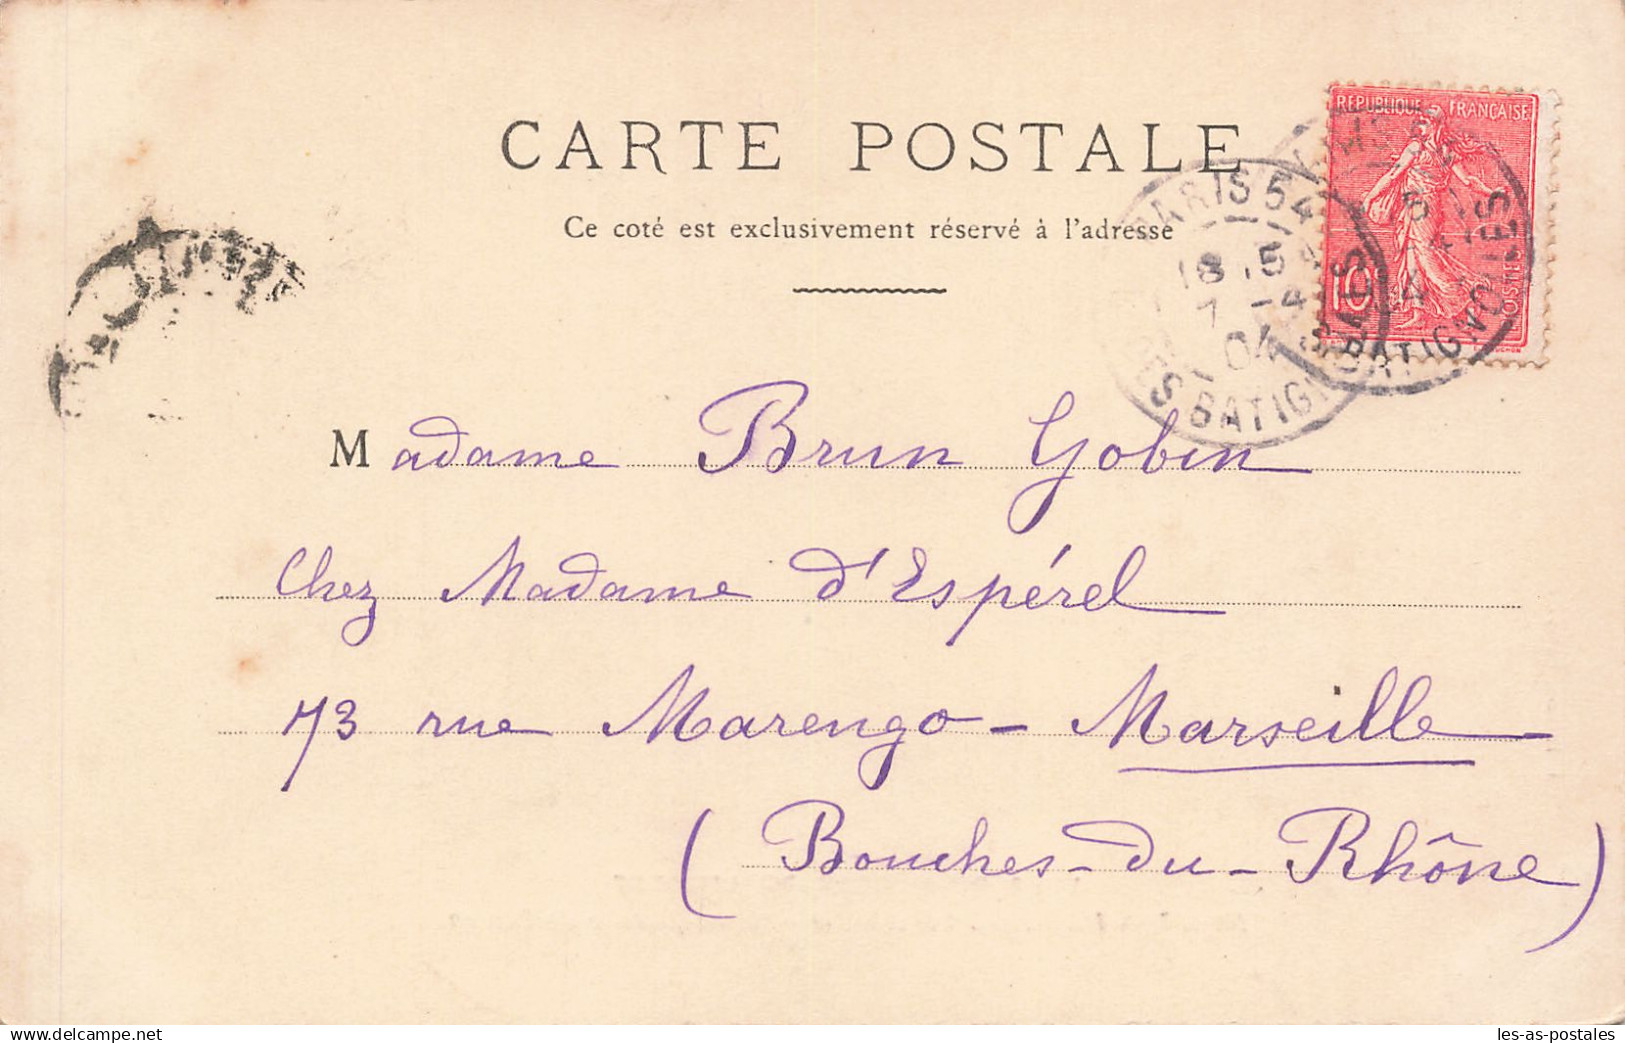 CARTE POSTALE
Ce coté est exclusivement réservé à l'adresse
REPUBLIQUE FRANÇAISE
10
POSTES
PARIS 54
18 15
7 -4
04
BATIGN
BATIGNOLLES
Madame Brun Gobin
Chez Madame d'Espérel
73 rue Marengo - Marseille
(Bouches-du-Rhône)
https://www.delcampe.net
les-as-postales